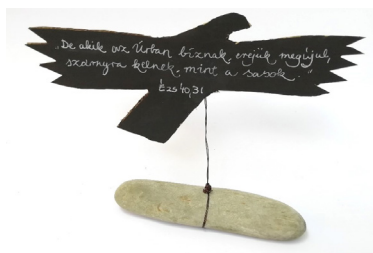 „De akik az Úrban bíznak, erejük megújul,
szárnyra kelnek, mint a sasok."
Ézs 40,31